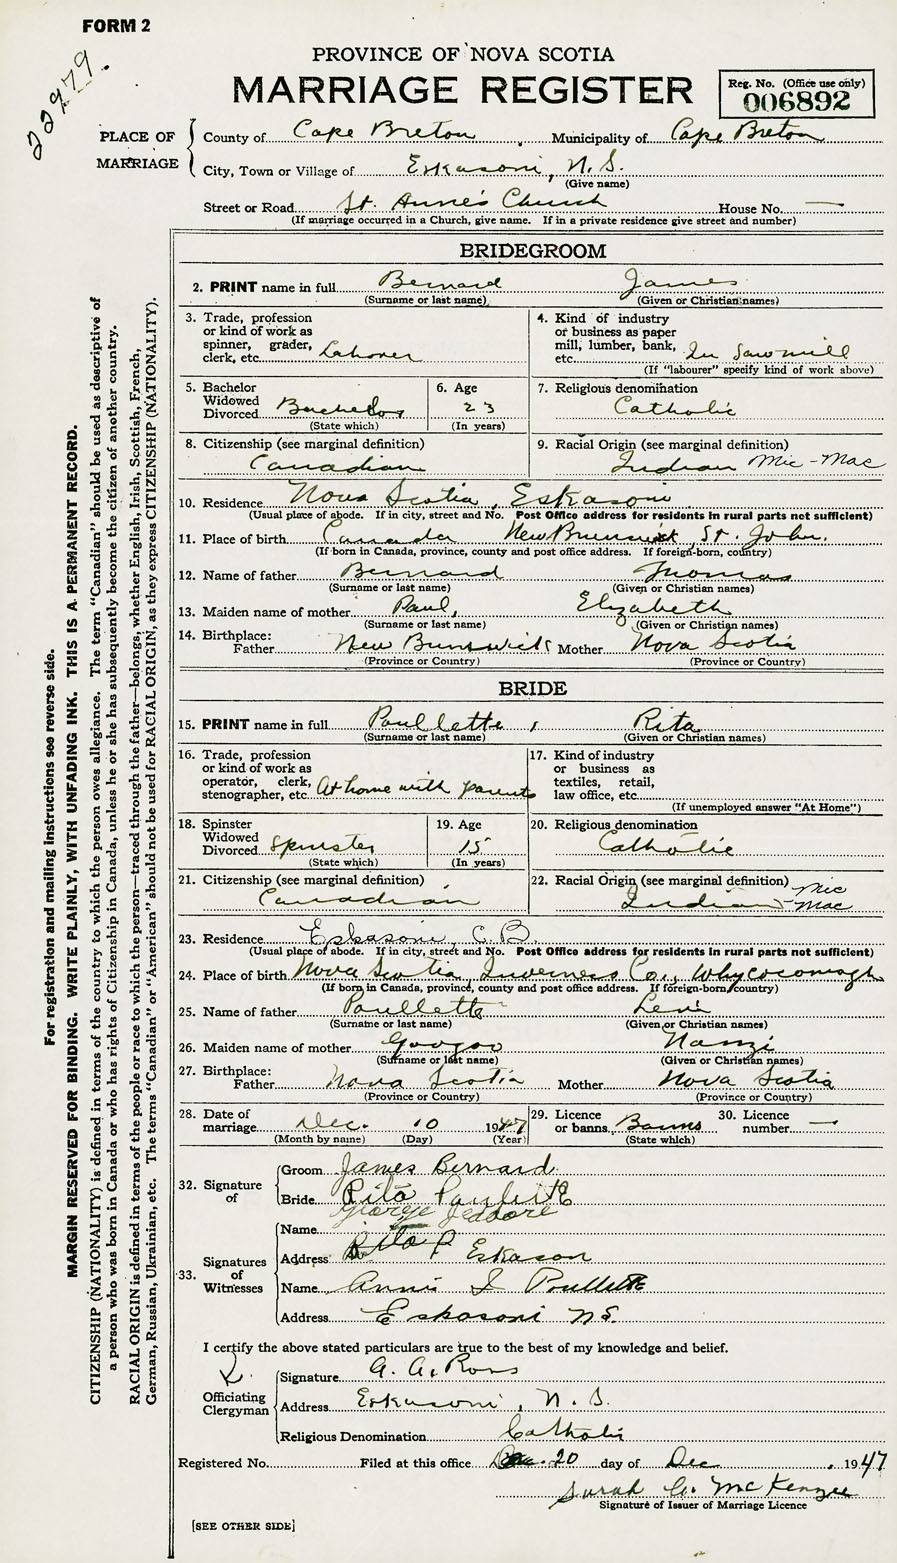 FORM 2
22979.
PROVINCE OF NOVA SCOTIA
MARRIAGE REGISTER
Reg. No. (Office use only)
006892
PLACE OF MARRIAGE
County of Cape Breton, Municipality of Cape Breton
City, Town or Village of Eskasoni, N.S.
(Give name)
Street or Road St. Anne's Church House No. —
(If marriage occurred in a Church, give name. If in a private residence give street and number)
BRIDEGROOM
2. PRINT name in full Bernard James
(Surname or last name) (Given or Christian names)
3. Trade, profession
or kind of work as
spinner, grader,
clerk, etc. Laborer
4. Kind of industry
or business as paper
mill, lumber, bank,
etc. In Sawmill
(If "labourer" specify kind of work above)
5. Bachelor
Widowed
Divorced Bachelor
(State which)
6. Age
23
(In years)
7. Religious denomination
Catholic
8. Citizenship (see marginal definition)
Canadian
9. Racial Origin (see marginal definition)
Indian Mic-Mac
10. Residence Nova Scotia, Eskasoni
(Usual place of abode. If in city, street and No. Post Office address for residents in rural parts not sufficient)
11. Place of birth Canada New Brunswick, St. John.
(If born in Canada, province, county and post office address. If foreign-born, country)
12. Name of father Bernard Thomas
(Surname or last name) (Given or Christian names)
13. Maiden name of mother Paul, Elizabeth
(Surname or last name) (Given or Christian names)
14. Birthplace:
Father New Brunswick Mother Nova Scotia
(Province or Country) (Province or Country)
BRIDE
15. PRINT name in full Paullette, Rita
(Surname or last name) (Given or Christian names)
16. Trade, profession
or kind of work as
operator, clerk,
stenographer, etc. At home with parents
17. Kind of industry
or business as
textiles, retail,
law office, etc.
(If unemployed answer "At Home")
18. Spinster
Widowed
Divorced Spinster
(State which)
19. Age
15
(In years)
20. Religious denomination
Catholic
21. Citizenship (see marginal definition)
Canadian
22. Racial Origin (see marginal definition)
Indian - Mic Mac
23. Residence Eskasoni, C.B.
(Usual place of abode. If in city, street and No. Post Office address for residents in rural parts not sufficient)
24. Place of birth Nova Scotia, Inverness Co., Whycocomagh
(If born in Canada, province, county and post office address. If foreign-born, country)
25. Name of father Paullette Levi
(Surname or last name) (Given or Christian names)
26. Maiden name of mother Googoo
(Surname or last name) (Given or Christian names)
27. Birthplace:
Father Nova Scotia Mother Nova Scotia
(Province or Country) (Province or Country)
28. Date of
marriage Dec. 10 1947
(Month by name) (Day) (Year)
29. Licence
or banns Banns
(State which)
30. Licence
number —
32. Signature of
Groom James Bernard
Bride Rita Paullette
George Jeddore
33. Signatures of Witnesses
Name
Address Rita P Eskason
Name Annie I Poullette
Address Eskasoni N.S.
I certify the above stated particulars are true to the best of my knowledge and belief.
Officiating Clergyman
Signature A. A. Ross
Address Eskasoni, N.S.
Religious Denomination Catholic
Registered No. Filed at this office 20 day of Dec., 1947
Sarah C. McKenzie
Signature of Issuer of Marriage Licence
[SEE OTHER SIDE]
For registration and mailing instructions see reverse side.
MARGIN RESERVED FOR BINDING. WRITE PLAINLY, WITH UNFADING INK. THIS IS A PERMANENT RECORD.
CITIZENSHIP (NATIONALITY) is defined in terms of the country to which the person owes allegiance. The term "Canadian" should be used as descriptive of
a person who was born in Canada or who has rights of Citizenship in Canada, unless he or she has subsequently become the citizen of another country.
RACIAL ORIGIN is defined in terms of the people or race to which the person—traced through the father—belongs, whether English, Irish, Scottish, French,
German, Russian, Ukrainian, etc. The terms "Canadian" or "American" should not be used for RACIAL ORIGIN, as they express CITIZENSHIP (NATIONALITY).